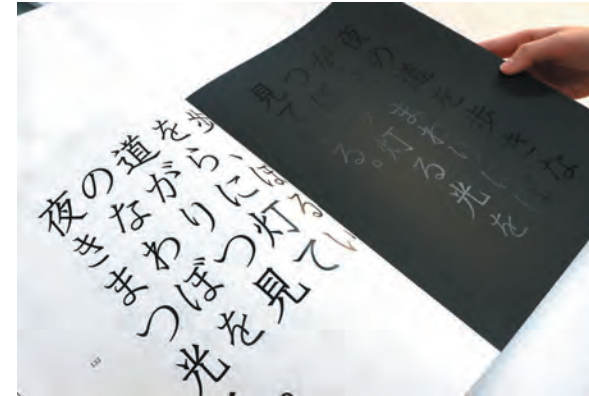 夜の道を歩
きながら、
まわりにぽ
つぽつ灯る
光を見てい
る。
夜の道を歩きな
がら、まわりにぽ
つぽつ灯る光を
見ている。